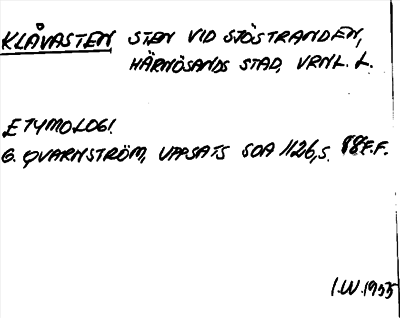 KLÅVASTEN STEN VID SJÖSTRANDEN,
HÄRNÖSANDS STAD, VRNL. L.
ETYMOLOGI.
G. QVARNSTRÖM, UPPSATS SOA 1126, S. 88F.F.
I.W. 1955